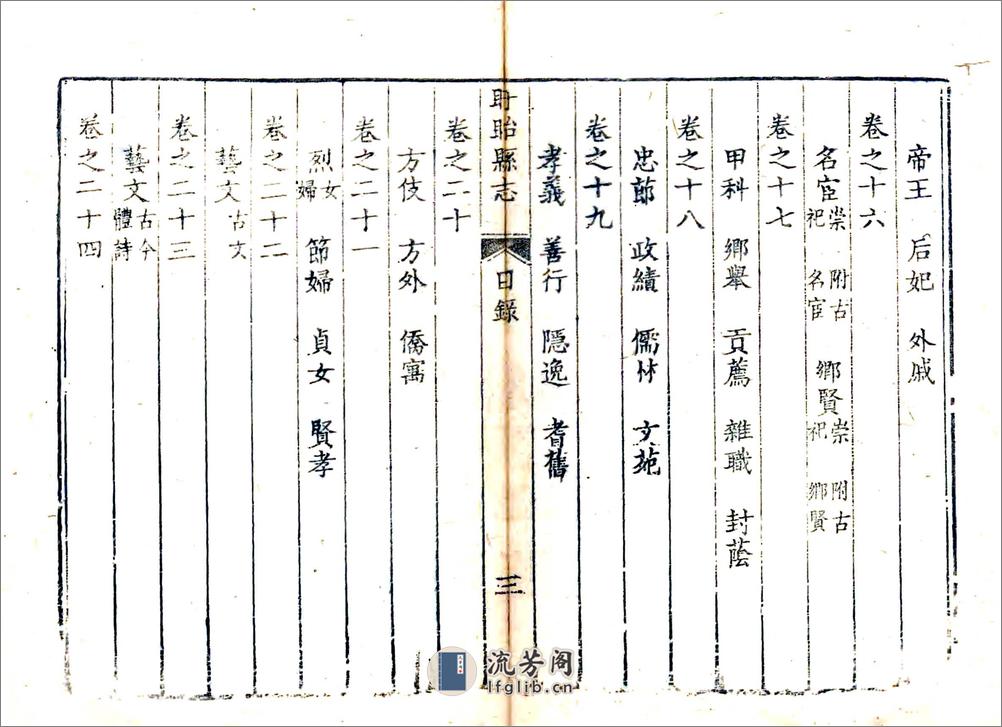 帝王 后妃 外戚
卷之十六
名宦崇祀 附古名宦 鄉賢崇祀 附古鄉賢
卷之十七
甲科 鄉舉 貢薦 雜職 封蔭
卷之十八
忠節 政績 儒林 文苑
卷之十九
孝義 善行 隱逸 耆舊
盱眙縣志 目錄 三
卷之二十
方伎 方外 僑寓
卷之二十一
烈女婦 節婦 貞女 賢孝
卷之二十二
藝文古文
卷之二十三
藝文古今體詩
卷之二十四
流芳阁
lfglib.cn